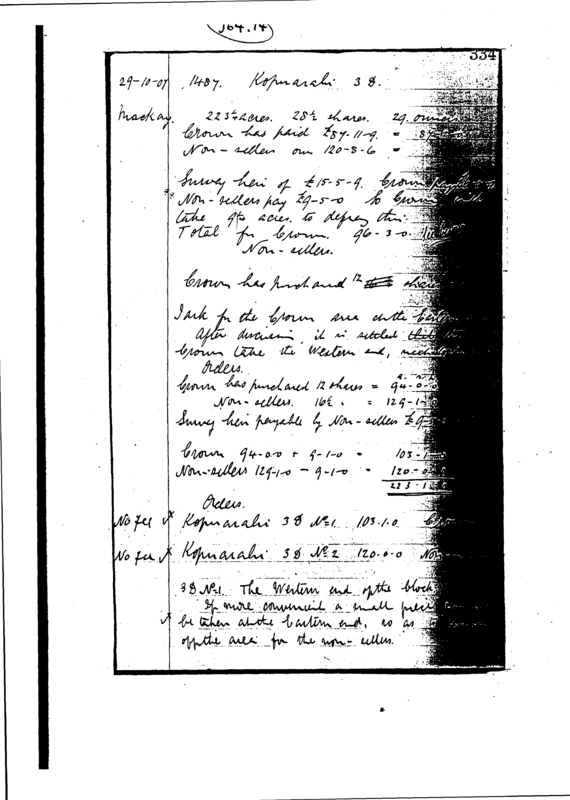 164.14
334
29-10-07 1487. Kopuarahi 3 D.
Mackay. 223¼ acres. 28½ shares. 29 owners
Crown has paid £87-11-9. = 87
Non-sellers own 120-8-6 =
Survey lien of £15-5-9. Crown pays
Non-sellers pay £9-5-0 So Crown
take 9 acres. to defray this.
Total for Crown. 96-3-0.
Non-sellers.
Crown has purchased 12 shares
I ask for the Crown area on the Eastern
After discussion, it is settled that the
Crown take the Western end,
Orders.
Crown has purchased 12 shares = 94-0-0
Non-sellers. 16½ " = 129-1-0
Survey lien payable by Non-sellers £9-5
Crown 94-0-0 + 9-1-0 = 103-1-0
Non-sellers 129-1-0 - 9-1-0 = 120-0-0
223-1-0
Orders.
No fee Kopuarahi 3 D No 1. 103.1.0
No fee Kopuarahi 3 D No 2 120.0.0 Non
3 D No 1. The Western end of the block
If more convenient a small piece
be taken at the Eastern end, so as
off the area for the non-sellers.